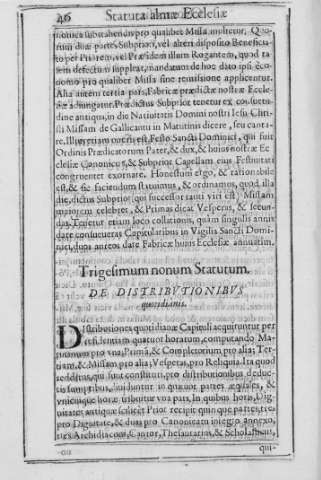 46 Statuta almæ Ecclesiæ
pro qualibet Missa mulctetur. Quo-
rum duæ partes Subpriori, vel alteri disposito Beneficia-
to per Priorem, vel Præsidem illum Rogantem, quod ta-
lem defectum suppleat, mandatum de hoc dato ipsi œco-
nomo pro qualibet Missa sine remissione applicentur.
Alia autem tertia pars, Fabricæ prædictæ nostræ Eccle-
siæ adiungatur. Prædictus Subprior tenetur ex consuetu-
dine antiqua, in die Natiuitatis Domini nostri Iesu Chri-
sti Missam de Gallicantu in Matutinis dicere, seu canta-
re. Festo Sancti Dominici, qui fuit
Ordinis Prædicatorum Pater, & dux, & huius nostræ Ec
clesiæ Canonicus, & Subprior Capellam eius Festiuitati
congruenter exornare. Honestum ergo, & rationabile
est, & sic faciendum statuimus, & ordinamus, quod illa
die, dictus Subprior, qui successor tanti viri est, Missam
maiorem celebret, & Primas dicat Vesperas, & secun-
das. Tenetur etiam loco collationis, quam singulis annis
dare consueuerat Capitularibus in Vigilia Sancti Domi-
nici, duos aureos dare Fabricæ huius Ecclesiæ annuatim.
Trigesimum nonum Statutum.
DE DISTRIBVTIONIBVS
quotidianis.
DIstributiones quotidianæ Capituli acquiruntur per
præsentiam quatuor horarum, computando Ma-
tutinum pro vna, Primã, & Completorium pro alia; Ter-
tiam, & Missam pro alia; Vesperas, pro Reliqua. Ita quod
redditus, qui sunt constituti, pro distributionibus deduc-
tis sumptibus, diuiduntur in quatuor partes æquales, &
vnicuique horæ tribuitur vna pars. In quibus horis, Dig-
nitates antiquæ scilicet Prior recipit quinque partes, tres
pro Dignitate, & duas pro Canonicatu integro annexo,
Archidiaconi, Cantor, Thesaurarius, & Scholasticus,
qui-